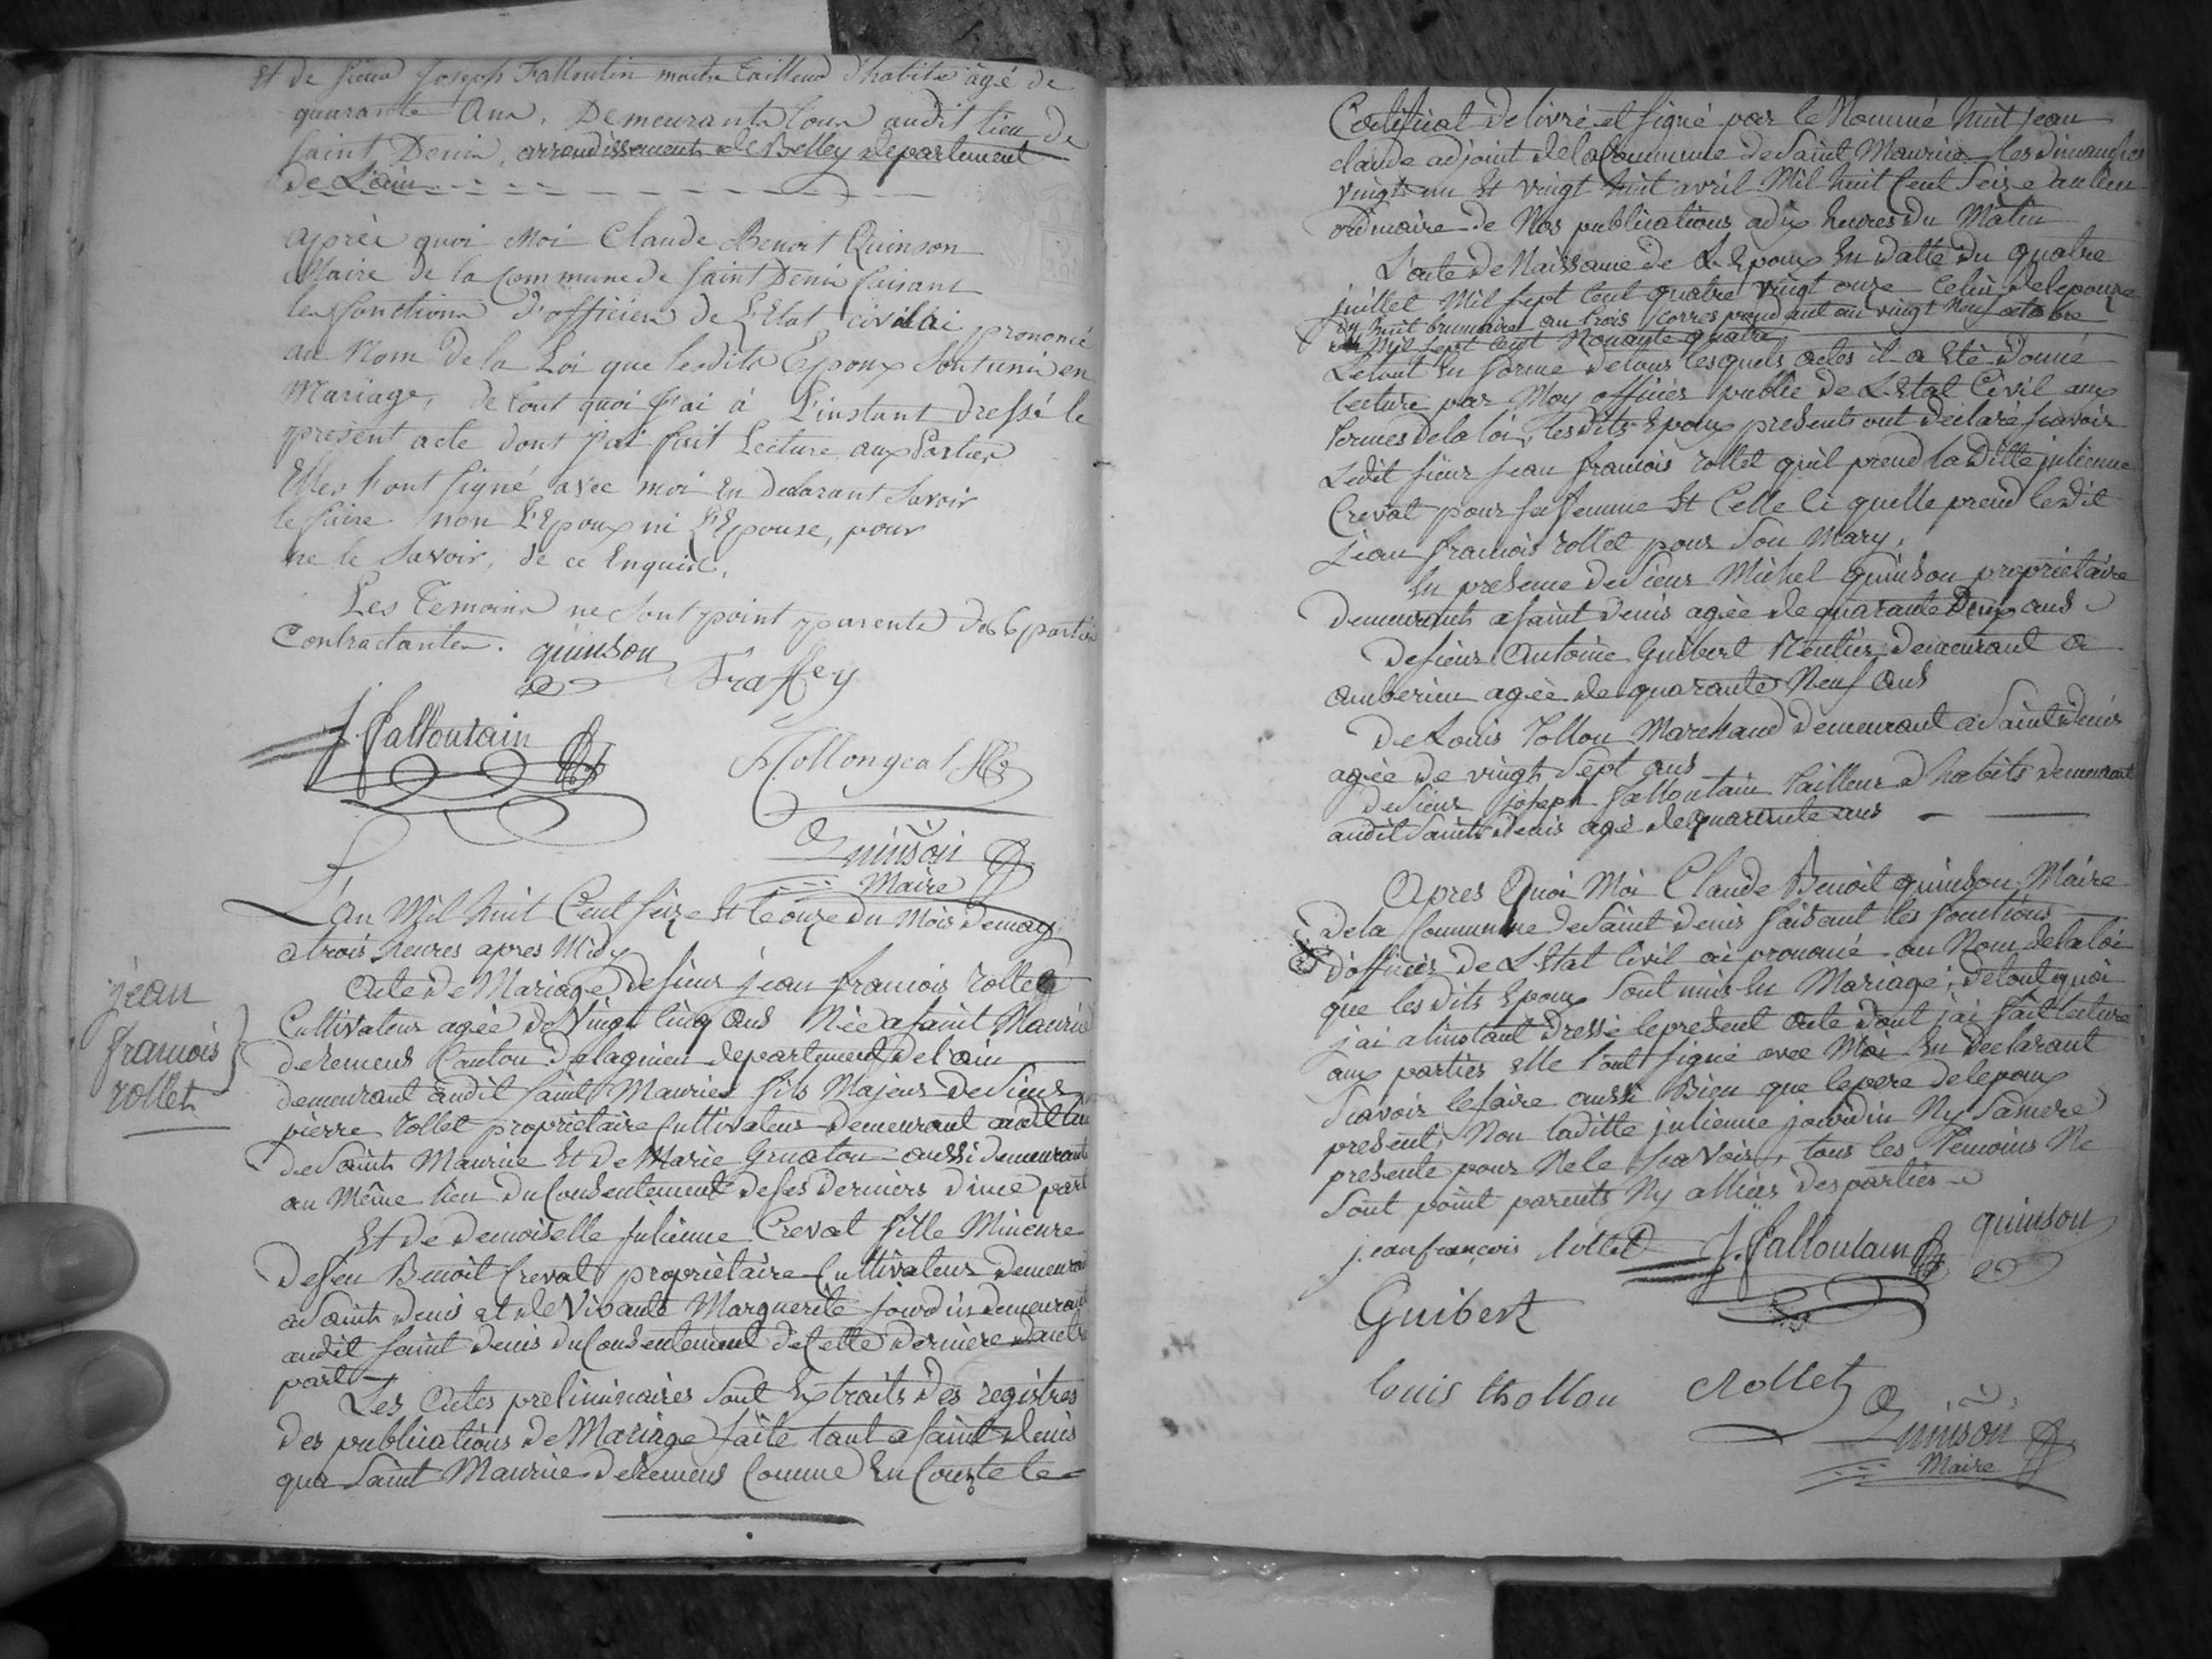 Et de sieur Joseph Falloutin maitre Tailleur d'habits âgé de
quarante Ans. Demeurants tous audit lieu de
Saint Denis, arrondissement de Belley departement
de L'ain
Après quoi Moi Claude Benoit Quinson
Maire de la Commune de Saint Denis faisant
les fonctions d'officier de L'Etat civil ai prononcé
au Nom de la Loi que lesdits Epoux Sont unis en
Mariage, de tout quoi J'ai à L'instant dressé le
present acte dont j'ai fait Lecture aux Parties
Elles l'ont signé avec moi en declarant Savoir
le faire non L'Epoux ni L'Epouse, pour
ne le Savoir, de ce Enquis.
Les Temoins ne sont point parents des parties
Contractantes. quinson
Traffey
J. Falloutain
Collongeat
Quinson
Maire
L'an Mil huit Cent seize Et le onze du Mois de may
a trois heures apres Midy
jean
francois
rollet
Acte De Mariage de sieur jean francois rollet
Cultivateur agée de Vingt Cinq Ans Née a saint Maurice
de remens Canton de lagnieu departement de l'ain
demeurant audit saint Maurice fils Majeur de Sieur
pierre rollet proprietaire Cultivateur demeurant audit lieu
de Saint Maurice Et De Marie Gruaton aussi demeurante
au Même lieu du Consentement de ses derniers d'une part
Et de demoiselle julienne Crevat fille Mineure
de feu Benoit Crevat proprietaire Cultivateur demeurant
a Saint denis et de Vivante Marguerite jourdin demeurant
audit saint denis du Consentement de Cette derniere d'autre
part
Les Actes preliminaires Sont Extraits des registres
des publications de Mariage faite tant a saint denis
qua Saint Maurice de remens Comme En Conste le
Certificat delivré et signé par le Nommé huit jean
claude adjoint de la Commune de Saint Maurice les dimanches
vingt un Et vingt huit avril Mil huit Cent Seize au lieu
ordinaire de Nos publications a dix heures du Matin
L'acte de Naissance de L'Epoux En datte du quatre
juillet Mil sept Cent quatre vingt onze Celui de lepouze
du huit brumaire an trois Correspondant au vingt Neuf octobre
Mil sept Cent Nonante quatre
Le tout En forme de tous lesquels actes il a Eté donné
lecture par Moy officier public de L'Etat Civil aux
termes de la loi, les dits Epoux presents ont declaré scavoir
Ledit sieur jean francois rollet quil prend la Ditte julienne
Crevat pour sa femme Et Celle Ci quelle prend ledit
jean francois rollet pour Son Mary.
En presence de Sieur Michel quinson proprietaire
demeurant a saint denis agée de quarante deux ans
de sieur Antoine Guibert Rentier demeurant a
amberieu agée de quarante Neuf Ans
De Louis Tollon Marchand demeurant a Saint denis
agée de vingt Sept ans
de Sieur joseph falloutain tailleur d'habits demeurant
audit Saint denis agé de quarante ans
Apres Quoi Moi Claude Benoit quinson Maire
de la Commune de Saint denis faisant les fonctions
d'officier de L'Etat Civil ai prononcé au Nom de la loi
que les dits Epoux Sont unis En Mariage; de tout quoi
j'ai a linstant dressé le present acte dont j'ai fait lecture
aux parties elle l'ont signé avec Moi En declarant
Scavoir le faire aussi Bien que le pere de lepoux
present; Non laditte julienne jourdin Ny Sa mere
presente pour Ne le scavoir, tous les temoins Ne
Sont point parents Ny alliés des parties
jean françois Rollet J. Falloutain quinson
Guibert
louis thollon Rollet
Quinson
Maire